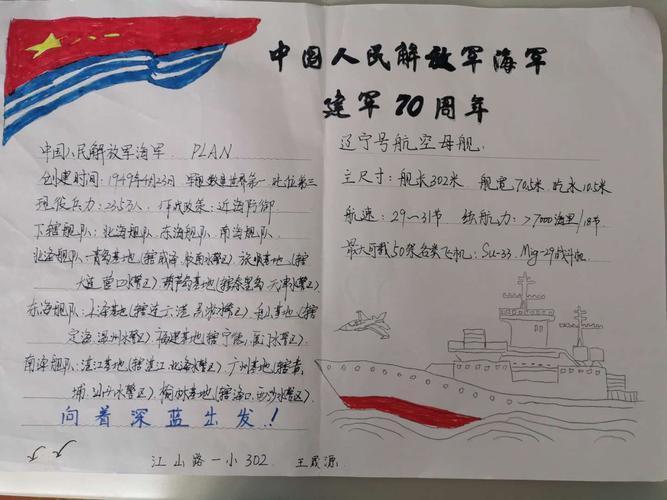 中国人民解放军海军
建军70周年
中国人民解放军海军 PLAN
创建时间:1949年4月23日 军舰数量世界第一 吨位第三
现役兵力:23.5万人 作战政策:近海防御
下辖舰队:北海舰队、东海舰队、南海舰队
北海舰队:青岛基地(辖威海、胶南水警区)、旅顺基地(辖
大连、营口水警区)、葫芦岛基地(辖秦皇岛、天津水警区).
东海舰队:上海基地(辖连云港、吴淞水警区)、舟山基地(辖
定海、温州水警区)、福建基地(辖宁德、厦门水警区).
南海舰队:湛江基地(辖湛江、北海水警区)、广州基地(辖黄
埔、汕头水警区)、榆林基地(辖海口、西沙水警区).
向着深蓝出发!
辽宁号航空母舰.
主尺寸:舰长302米 舰宽70.5米 吃水10.5米
航速:29~31节 续航力:>7000海里/18节
最大可载50架各类飞机:Su-33、Mig-29战斗机
江山路一小302 王晟源